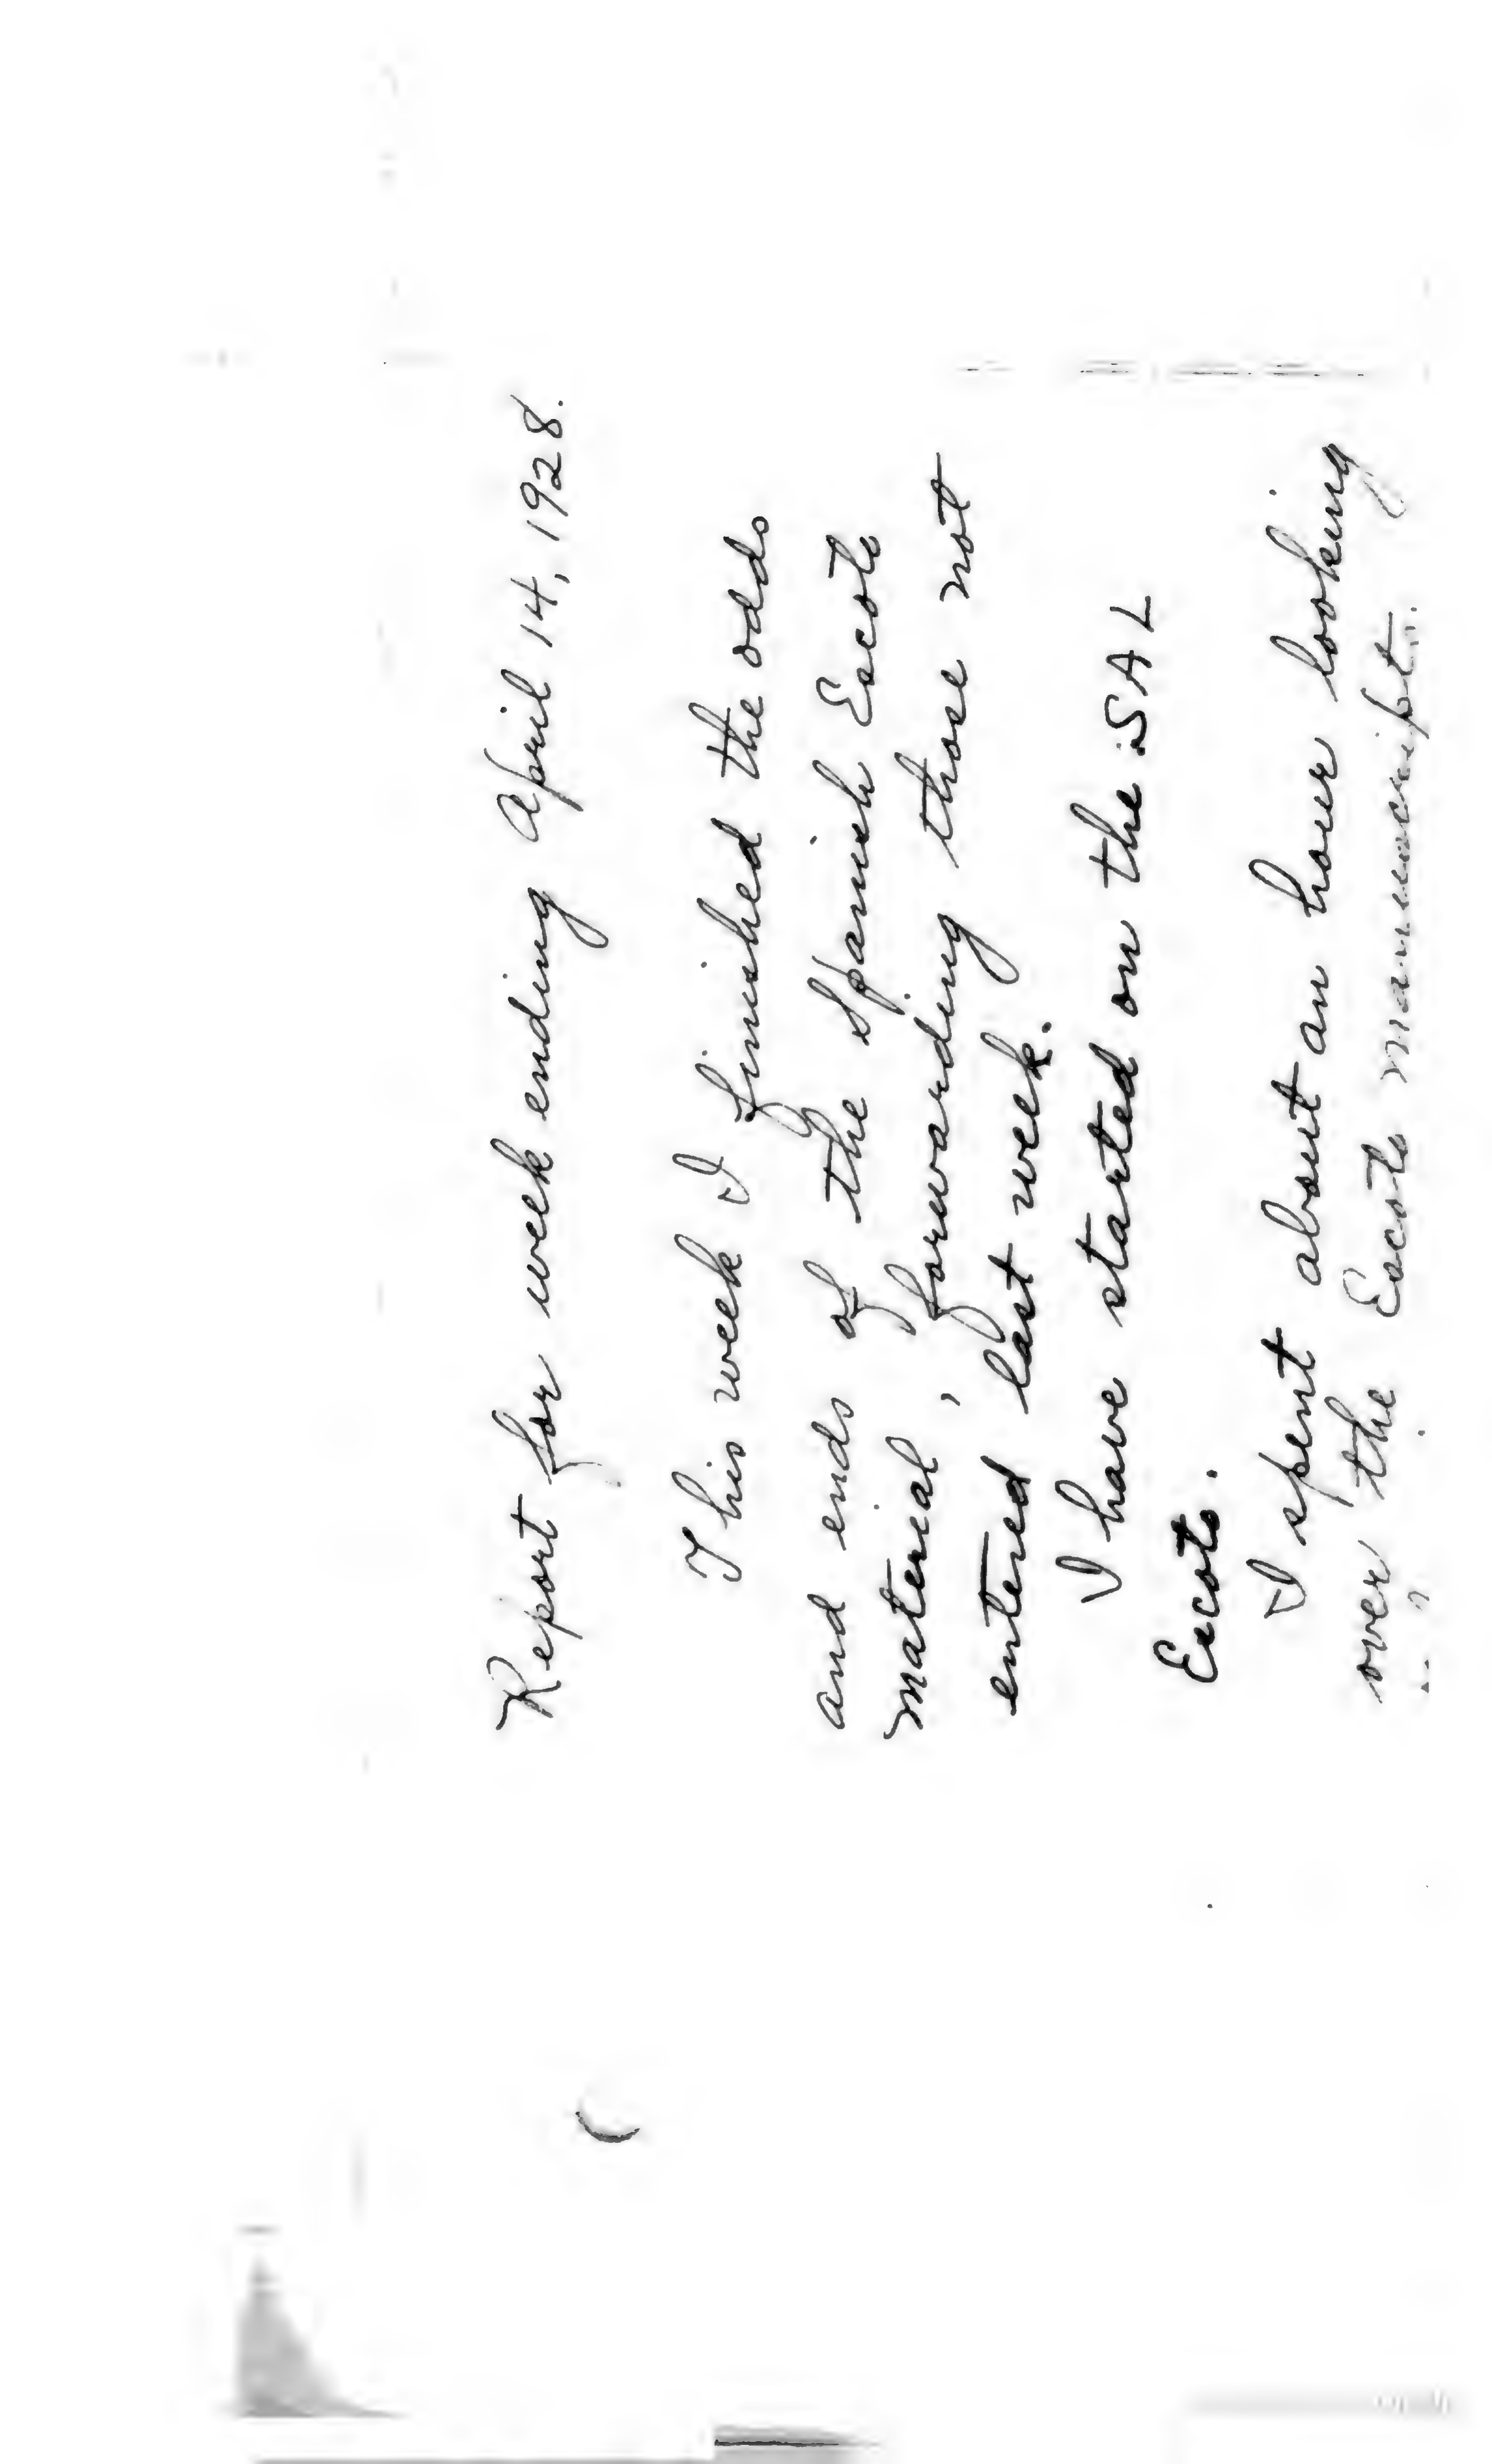 Report for week ending April 14, 1928.
This week I finished the odds
and ends of the Spanish Escoto
material, forwarding those not
entered last week.
I have started on the SAL
Escoto.
I spent about an hour looking
over the Escoto manuscript.